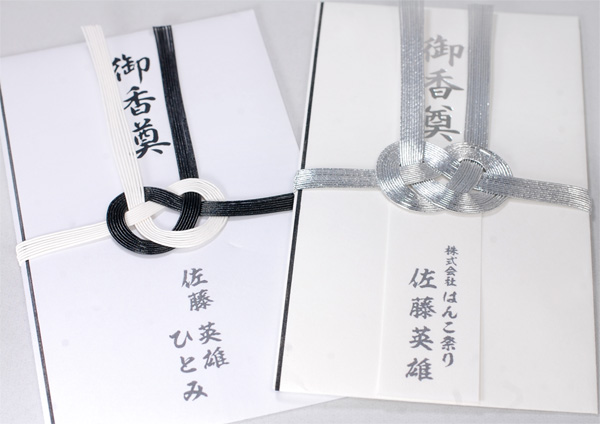 御香奠
佐藤 英雄
ひとみ
御香奠
株式会社 はんこ祭り
佐藤英雄